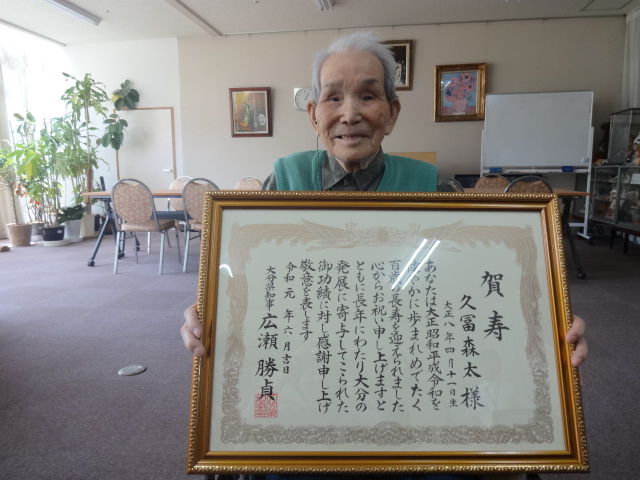 賀寿
久冨森太 様
大正八年四月十一日生
あなたは大正昭和平成令和を
健やかに歩まれめでたく
百歳の長寿を迎えられました
心からお祝い申し上げますと
ともに長年にわたり大分の
発展に寄与してこられた
御功績に対し感謝申し上げ
敬意を表します
令和元年六月吉日
大分県知事 広瀬勝貞